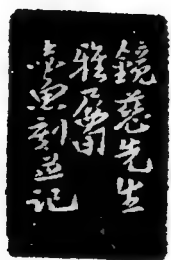 鏡慈先生
雅屬
刻並記